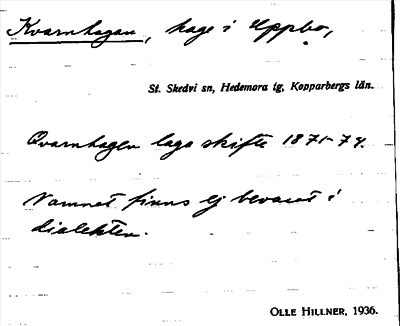 Kvarnhagan, hage i Uppbo,
St. Skedvi sn, Hedemora tg, Kopparbergs län.
Qvarnhagen laga skifte 1871-79.
Namnet finns ej bevarat i
dialekten.
OLLE HILLNER, 1936.